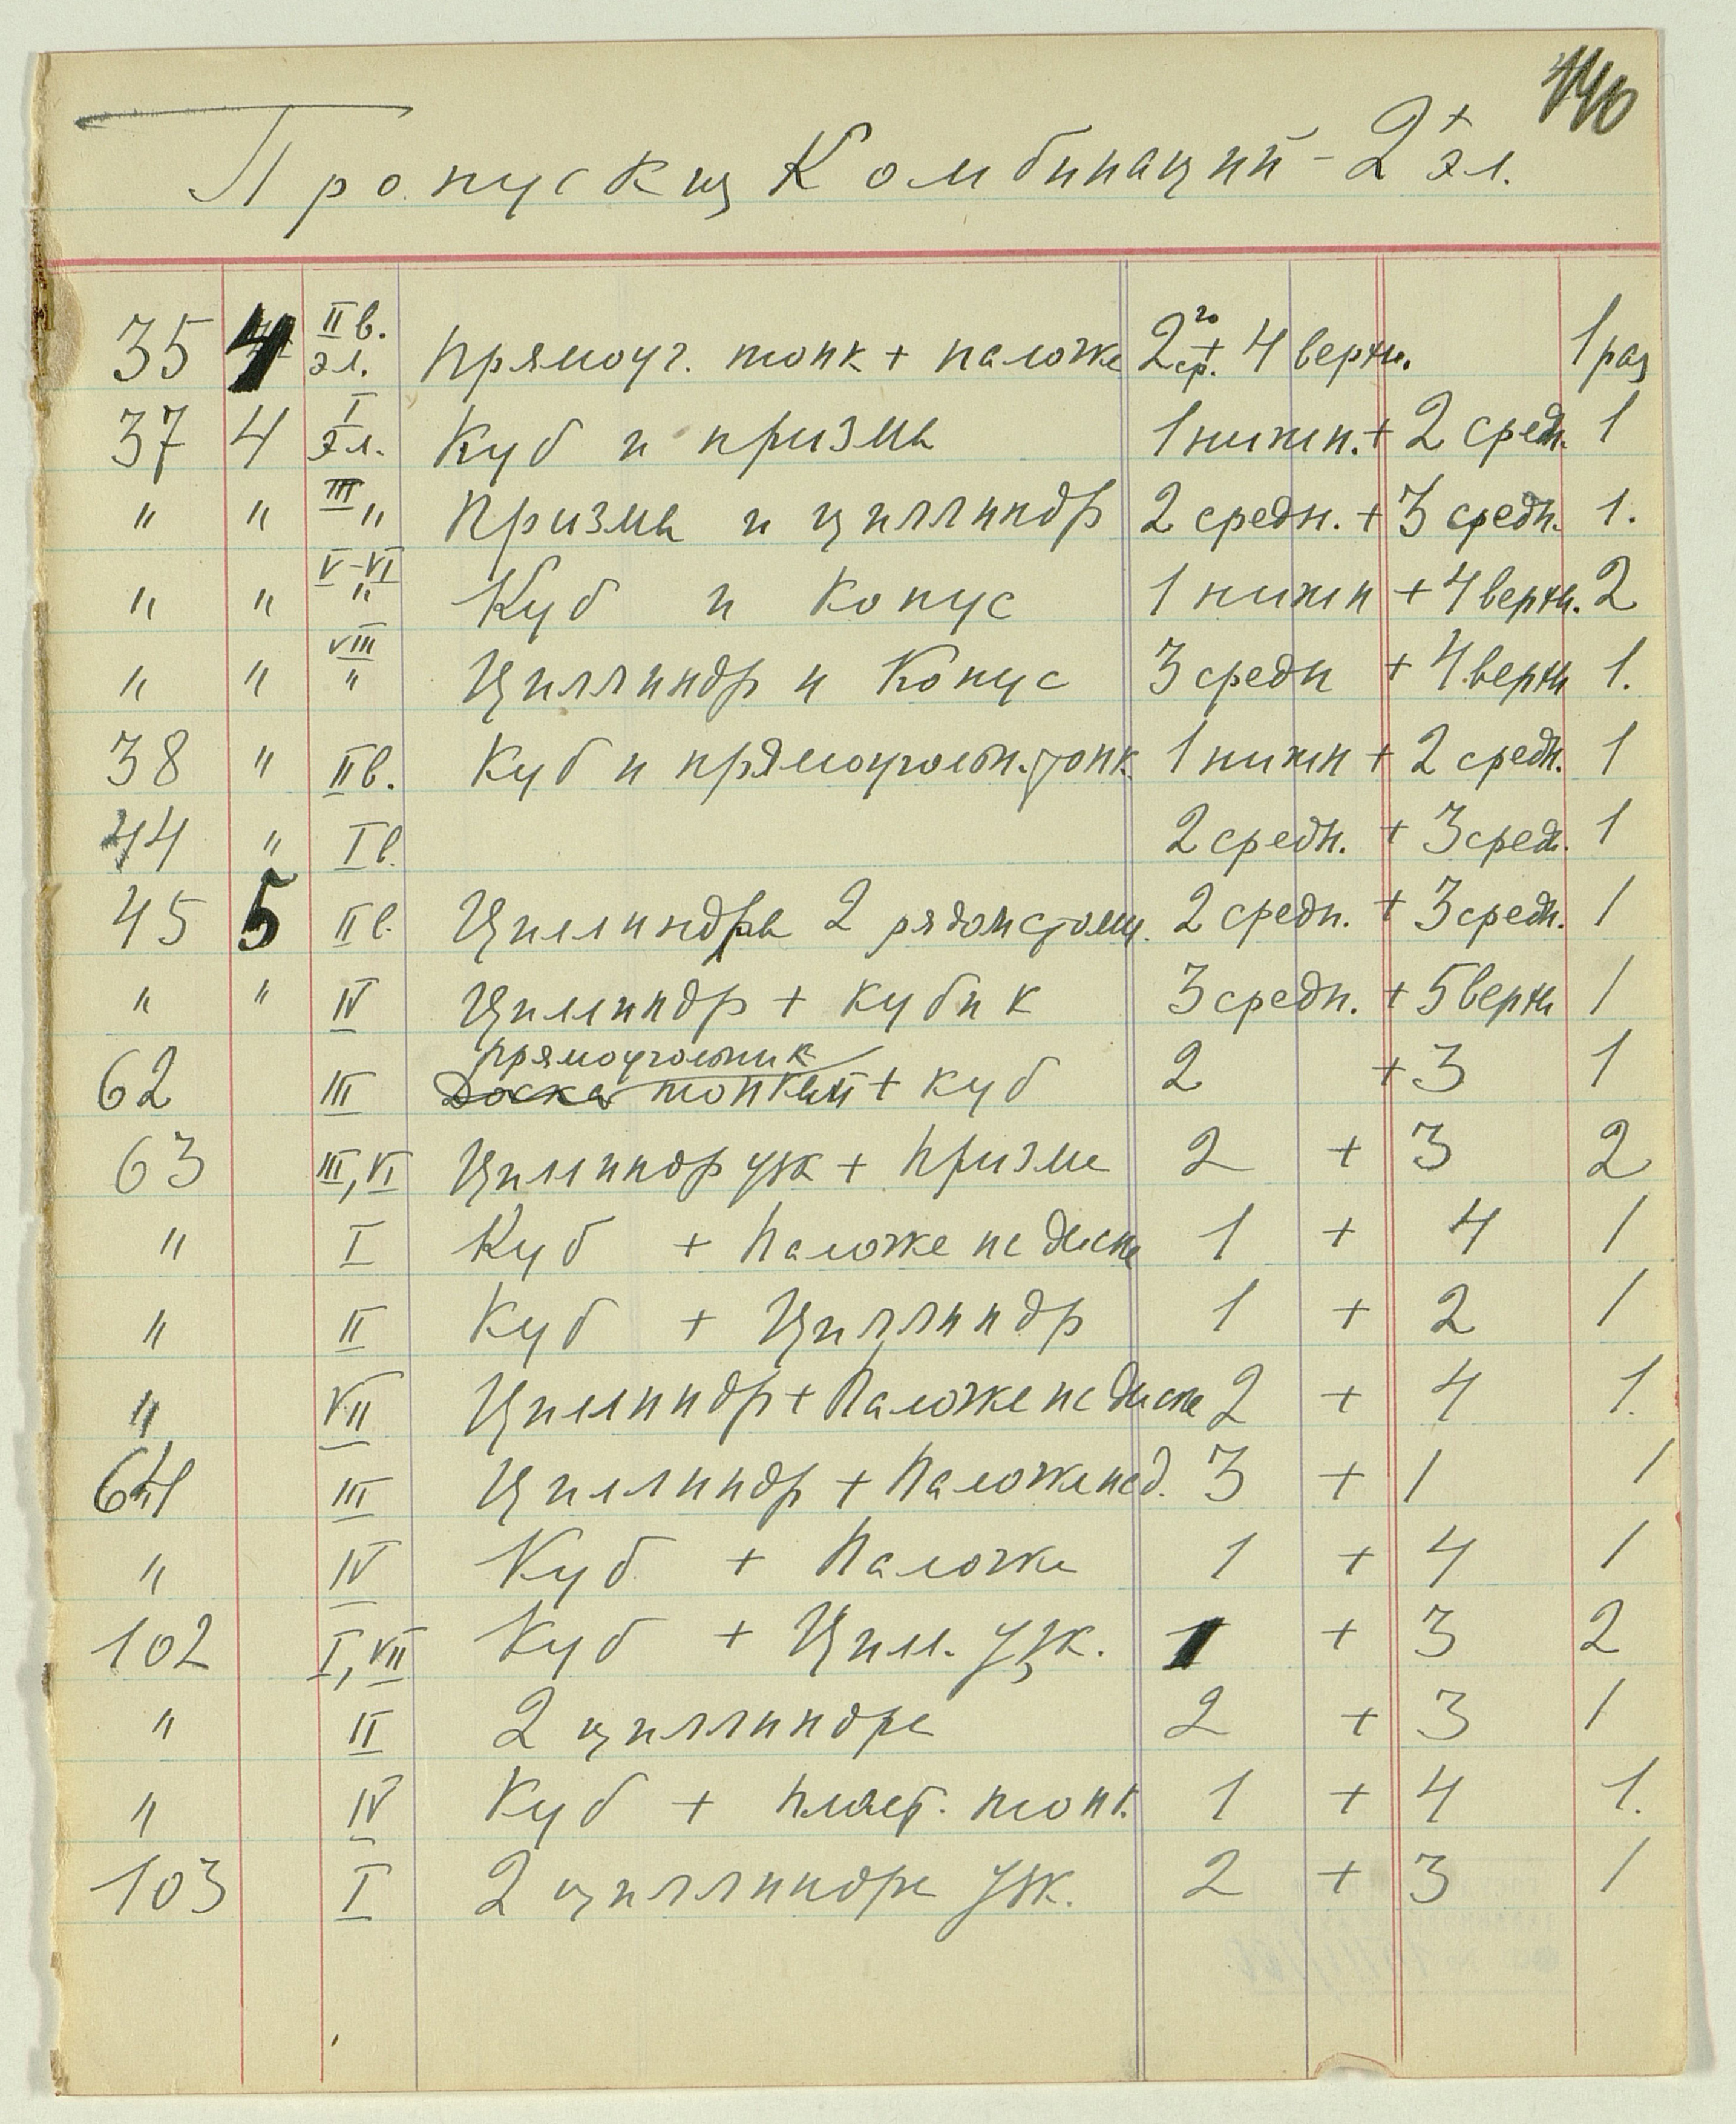 Пропуски Комбинаций - 2х эл.
35 4 IIв. эл. прямоуг. тонк + палочка 2го ср. + 4 верхн. 1 раз
37 4 I эл. Куб и призма 1 нижн. + 2 средн. 1
" " III " Призма и циллиндр 2 средн. + 3 средн. 1.
" " V-VI " Куб и Конус 1 нижн + 4 верхн. 2
" " VIII " Циллиндр и Конус 3 средн + 4 верхн 1.
38 " IIв. Куб и прямоугольн. тонк. 1 нижн + 2 средн. 1
44 " Iв. 2 средн. + 3 средн. 1
45 5 IIв. Цилиндра 2 рядом стоящ. 2 средн. + 3 средн. 1
" " IV Цилиндр + кубик 3 средн. + 5 верхн 1
прямоугольник
62 III Доска тонкая + куб 2 + 3 1
63 III, VI Цилиндр уж + призма 2 + 3 2
" I Куб + палочка на диске 1 + 4 1
" II Куб + Циллиндр 1 + 2 1
" VII Цилиндр + палочка на диске 2 + 4 1.
64 III Цилиндр + палочка на д. 3 + 1 1
" IV Куб + палочка 1 + 4 1
102 I, VII Куб + Цил. узк. 1 + 3 2
" II 2 циллиндра 2 + 3 1
" IV Куб + пласт. тонк. 1 + 4 1.
103 I 2 циллиндра узк. 2 + 3 1